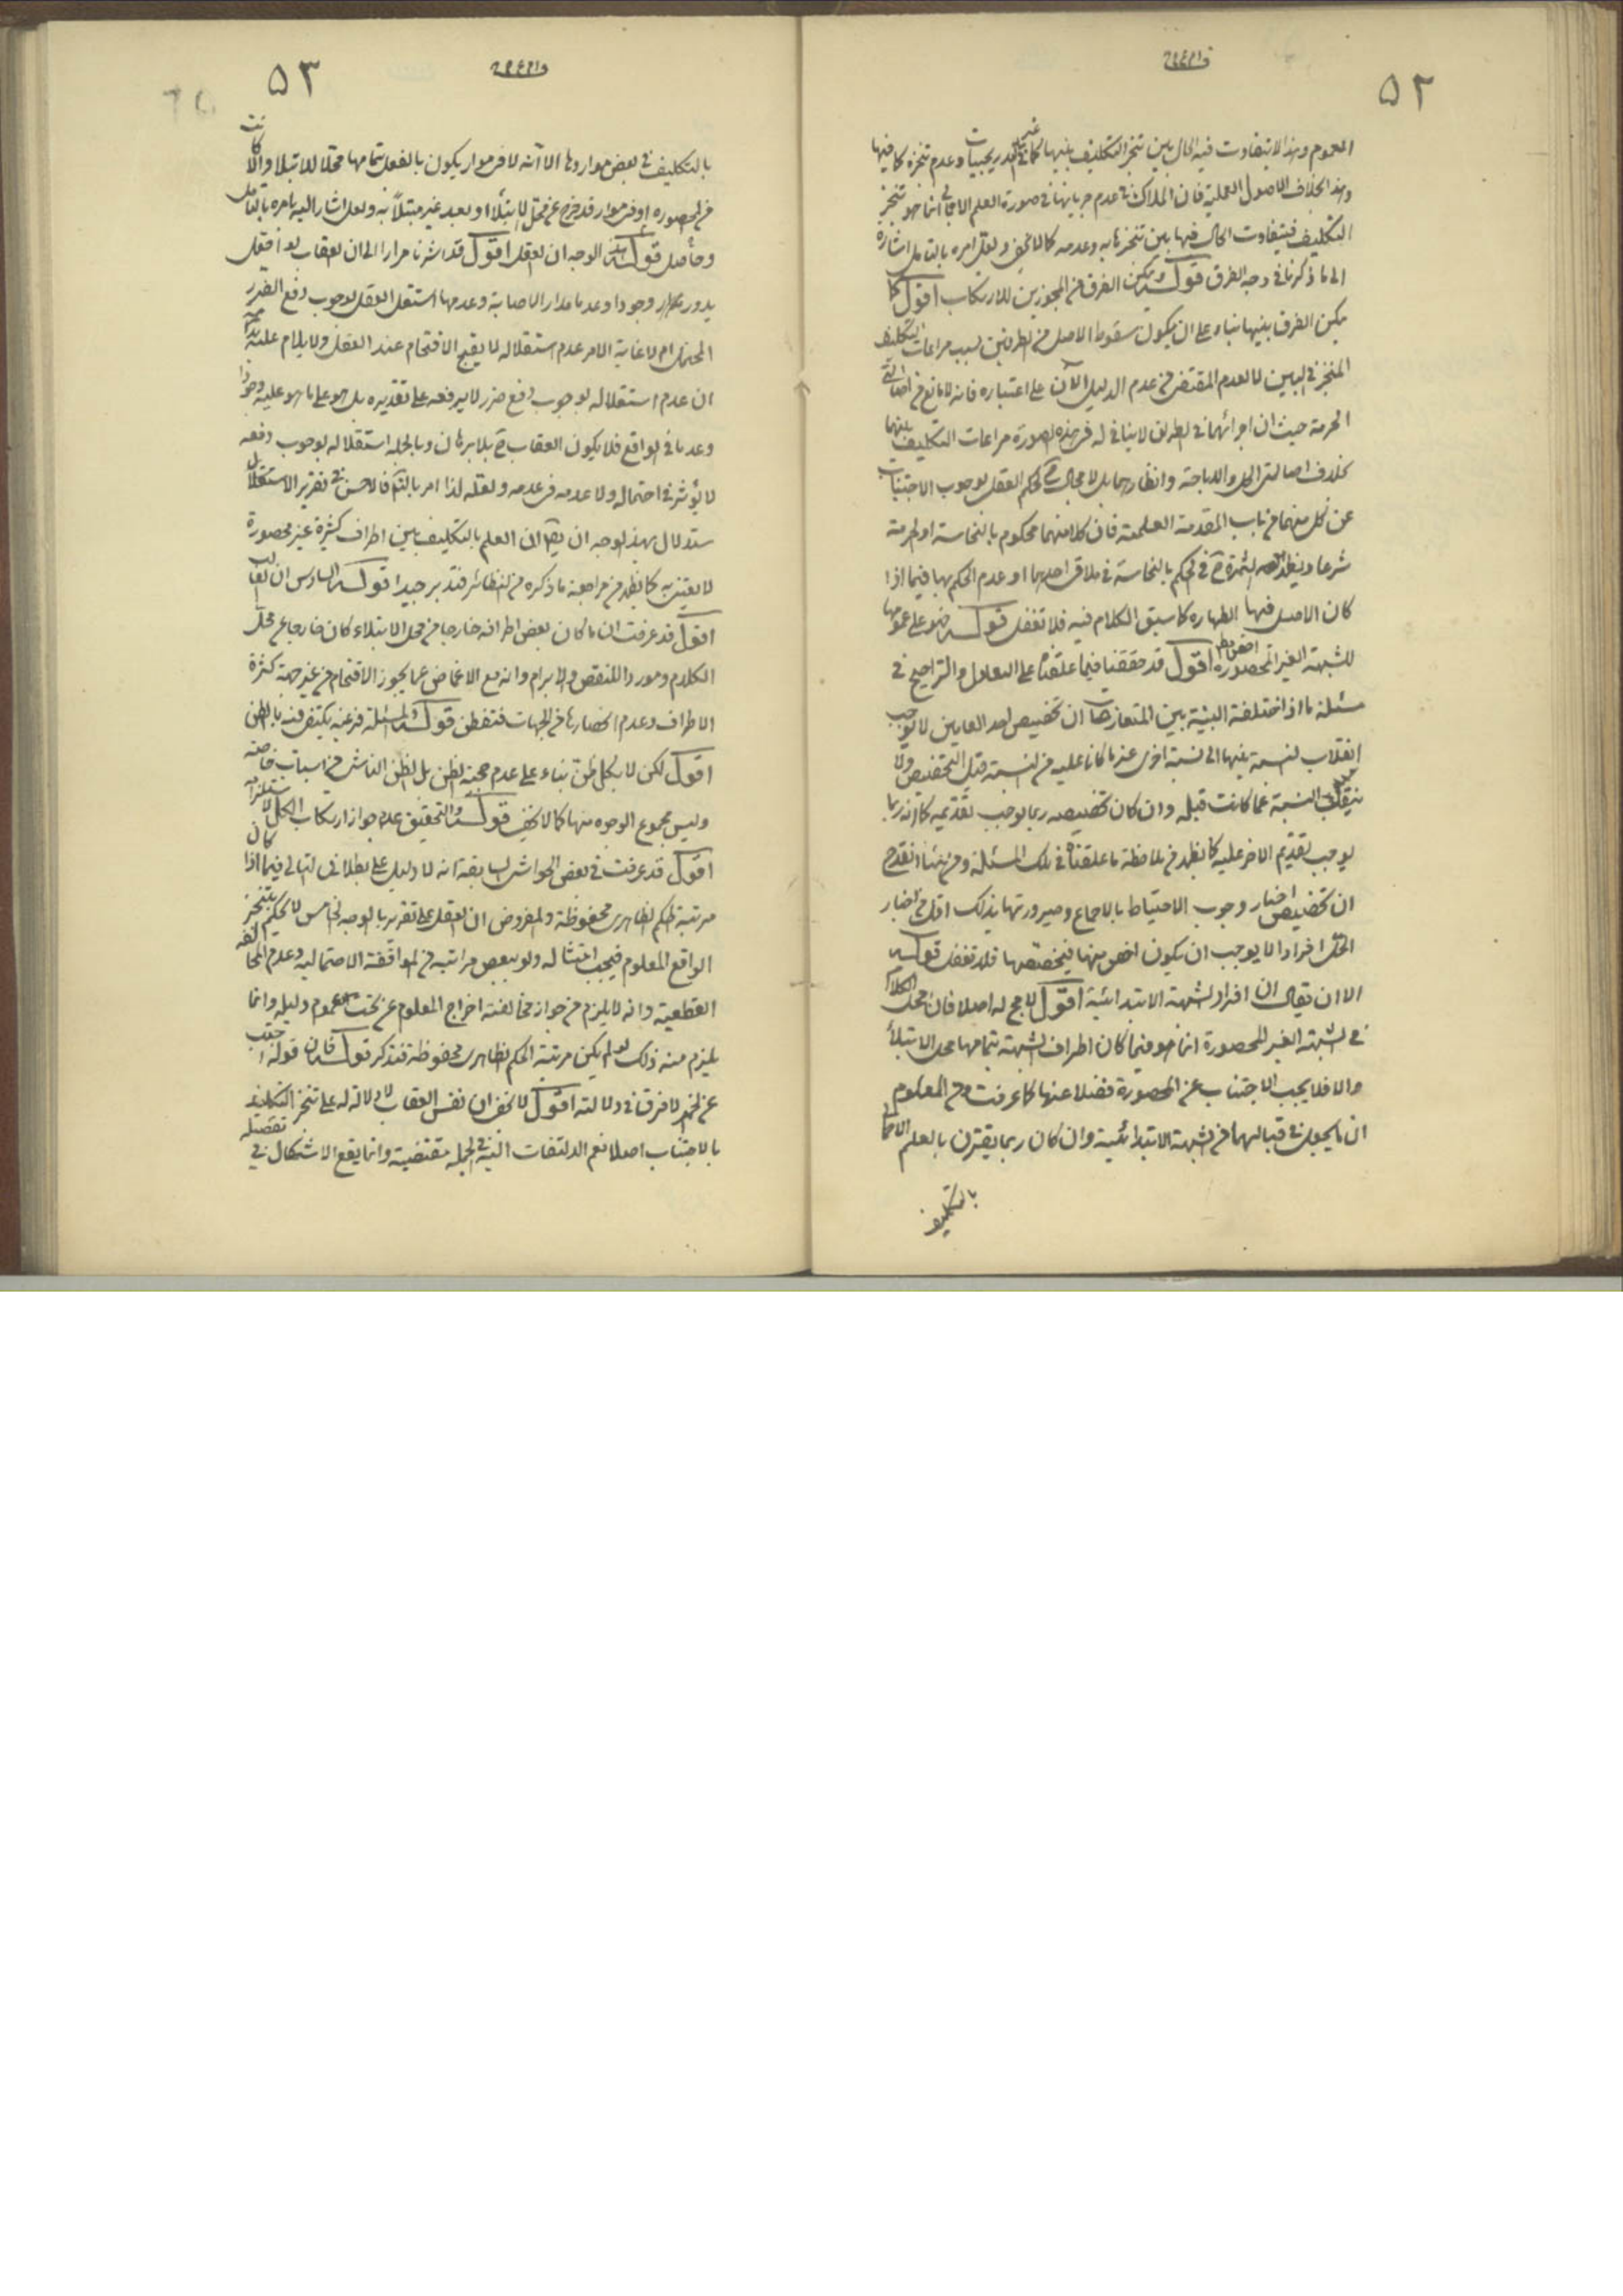 ٥٢
العموم وهذا لا يتفاوت فيه الحال بين تنجز التكليف بينها كما في غير التدريجيات وعدم تنجزه كما فيها
وهذا بخلاف الاصول العملية فان الملاك في عدم جريانها في صورة العلم الاجمالي انما هو تنجز
التكليف فيتفاوت الحال فيها بين تنجزها به وعدمه كما لا يخفى ولعل امره بالتامل اشارة
الى ما ذكرنا في وجه الفرق قوله ويمكن الفرق من المجوزين للارتكاب اقول كما
يمكن الفرق بينها بناء على ان يكون سقوط الاصل من الطرفين بسبب مراعات التكليف
المنجز في البين لا لعدم المقتضى من عدم الدليل الآن على اعتباره فانه لا مانع من اصالتي
الحرمة حيث ان اجرائهما في الطرفين لا ينافي له في هذه الصورة مراعات التكليف بينهما
بخلاف اصالتى الحل والاباحة وانظارهما بل لا مجال ح لحكم العقل بوجوب الاجتناب
عن كل منهما من باب المقدمة العلمية فان كلا منهما محكوم بالنجاسة او الحرمة
شرعا ويظهر الثمرة ح في الحكم بالنجاسة في ملاقى احدهما او عدم الحكم بها فيما اذا
كان الاصل فيها الطهارة كما سبق الكلام فيه فلا تغفل قوله فهو على عمومها
للشبهة الغير المحصورة اخص مطلقا اقول قد حققنا فيما علقناه على التعادل والتراجيح في
مسئلة ما اذا اختلفت النسبة بين المتعارضات ان تخصيص احد العامين لا يوجب
انقلاب النسبة بينها الى نسبة اخرى عند ما كانا عليه من النسبة قبل التخصيص ولا
ينقلب النسبة عما كانت قبله وان كان تخصيصه ربما يوجب تقديمه كما انه ربما
يوجب تقديم الاخر عليه كما يظهر من ملاحظة ما علقناه في تلك المسئلة ومن هنا انقدح
ان تخصيص اخبار وجوب الاحتياط بالاجماع وصيرورتها بذلك اقل من اخبار
الحل افرادا لا يوجب ان يكون اخص منها فيخصصها فلا تغفل قوله
الا ان يقال ان افراد الشبهة الابتدائية اقول لا مجال له اصلا فان محل الكلام
في الشبهة الغير المحصورة انما هو فيما كان اطراف الشبهة بتمامها محل الابتلاء
والا فلا يجب الاجتناب عن المحصورة فضلا عنها كما عرفت ومن المعلوم
ان ما يجعل في قبالهما من الشبهة الابتدائية وان كان ربما يقترن بالعلم الاجمالي
بالتكليف
٥٣
بالتكليف في بعض مواردها الا انه لا في موارد يكون بالفعل بتمامها محلا للابتلاء والا كانت
من المحصورة او في موارد قد خرج عن محل الابتلاء او بعد غير مبتلاً به ولعله اشار اليه بامره بالتامل
وحاصل قوله هذا الوجه ان العقل اقول قد اشرنا مرارا الى ان العقاب لو اقفل
يدور وجودا وعدما مدار الاصابة وعدمها استقل العقل بوجوب دفع الضرر
المحتمل ام لا غاية الامر عدم استقلاله لا يقبح الاقتحام عند العقل ولا يلام عليه
ان عدم استقلاله بوجوب دفع ضرر لا يرفعه على تقديره بل هو على ما هو عليه وجودا
وعدما في الواقع فلا يكون العقاب ح بلا برهان وبالجملة استقلاله بوجوب دفعه
لا يؤثر في احتماله ولا عدمه في عدمه ولعله لذا امر بالتامل فالاحسن في تقرير الاستدلال
بهذا الوجه ان يقال ان العلم بالتكليف بين اطراف كثيرة غير محصورة
لا يعتنى به كما يظهر من مراجعة ما ذكره من النظائر فتدبر جيدا قوله السادس ان الغالب
اقول قد عرفت ان ما كان بعض اطرافه خارجا من محل الابتلاء كان خارجا عن محل
الكلام ومورد النقض والابرام وانه مع الاغماض عما يجوز الاقتحام من غير جهة كثرة
الاطراف وعدم انحصارها من الجهات فتفطن قوله والمسئلة فرعية يكتفى فيه بالظن
اقول لكن لا بكل ظن بناء على عدم حجية الظن بل الظن الناشى من اسباب خاصة
وليس مجموع الوجوه منها كما لا يخفى قوله والتحقيق عدم جواز ارتكاب الكل لاستلزامه
اقول قد عرفت في بعض الحواشى السابقة انه لا دليل على بطلان التالى فيما اذا كان
مرتبة الحكم الظاهرى محفوظة والمفروض ان العقل على تقريره بالوجه الخامس لا يحكم بتنجز
الواقع المعلوم فيجب امتثاله ولو ببعض مراتبه من الموافقة الاحتمالية وعدم المخالفة
القطعية وانه لا يلزم من جواز مخالفته اخراج المعلوم عن تحت عموم دليله وانما
يلزم منه ذلك لو لم يكن مرتبة الحكم الظاهرى محفوظة فتذكر قوله فان قوله اجتنب
عن الخمر لا فرق في دلالته اقول لا يخفى ان نفس العقاب لا دلالة له على تنجز التكليف
بالاجتناب اصلا نعم الالتفات اليه في الجملة مقتضية وانما يقع الاشكال في تفصيله